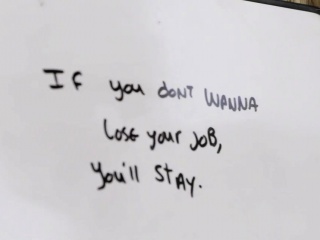 If you dont WANNA
lose your JOB,
You'll stAy.